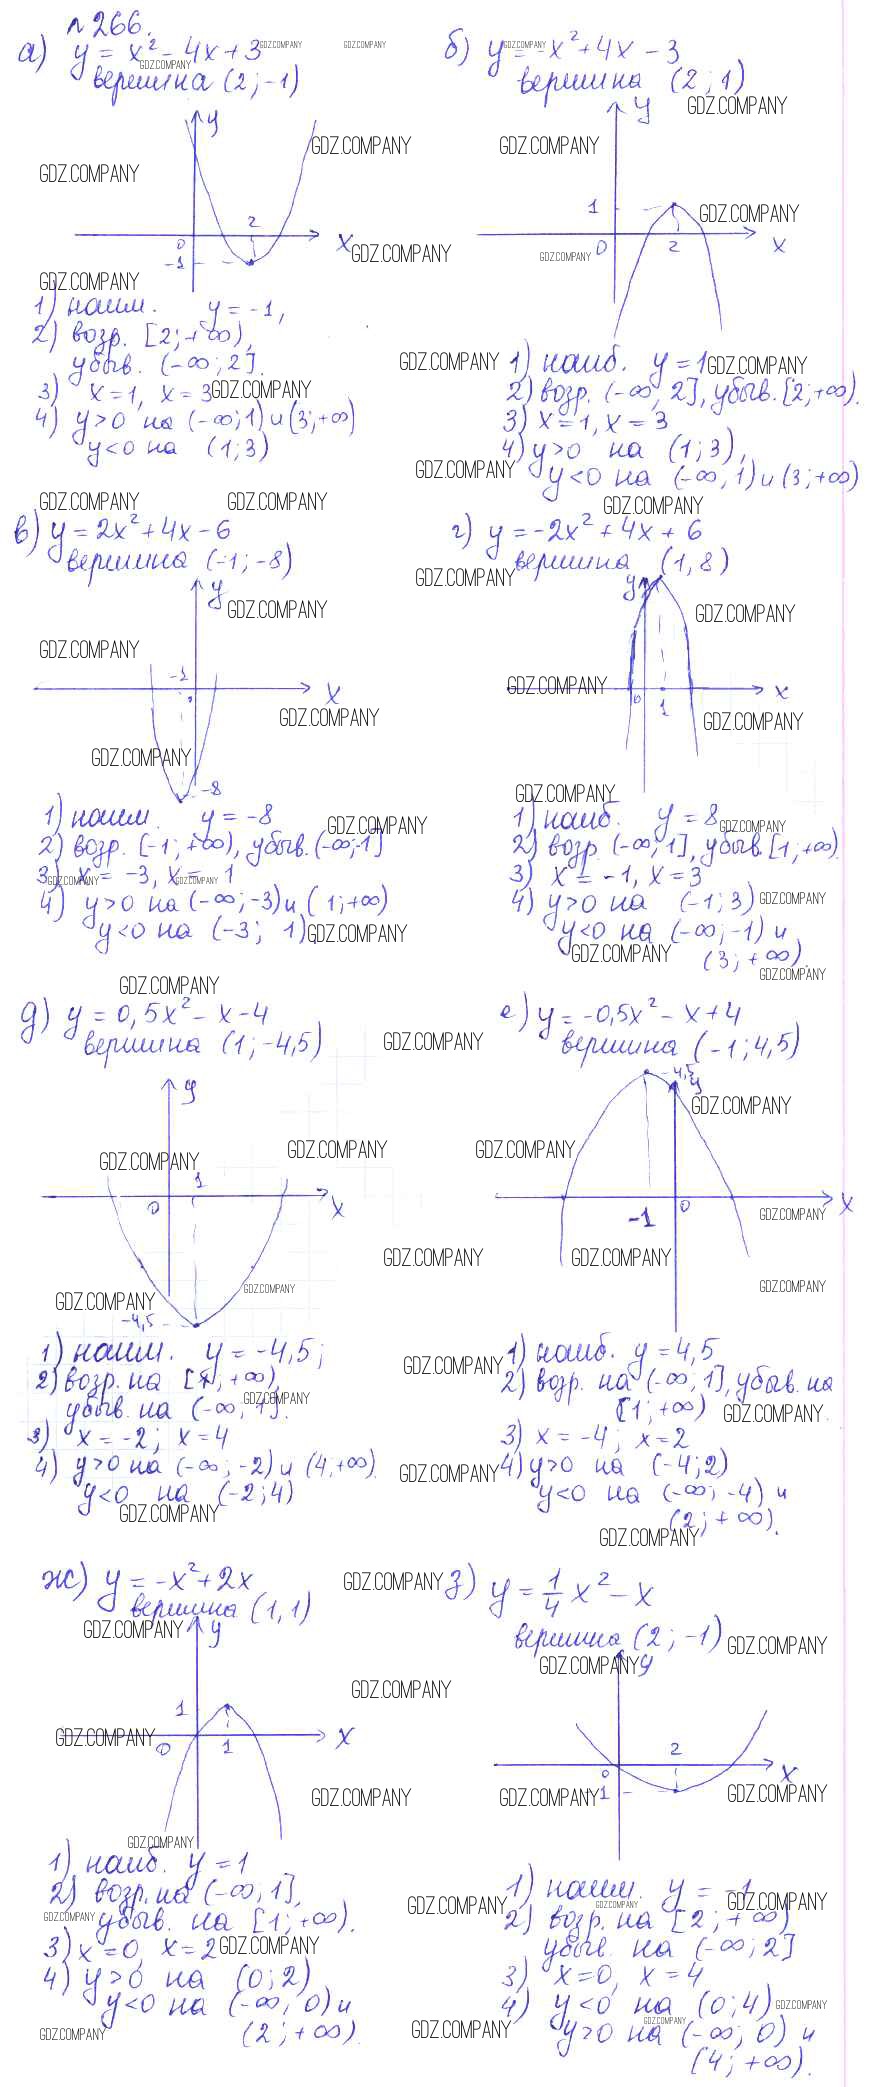 №266.
а) y = x² - 4x + 3
вершина (2; -1)
y
2
0
x
-1
1) наим. y = -1,
2) возр. [2; +∞),
убыв. (-∞; 2].
3) x = 1, x = 3
4) y > 0 на (-∞; 1) и (3; +∞)
y < 0 на (1; 3)
б) y = -x² + 4x - 3
вершина (2; 1)
y
1
0
2
x
1) наиб. y = 1
2) возр. (-∞, 2], убыв. [2; +∞).
3) x = 1, x = 3
4) y > 0 на (1; 3),
y < 0 на (-∞, 1) и (3; +∞)
в) y = 2x² + 4x - 6
вершина (-1; -8)
y
-1
x
-8
1) наим. y = -8
2) возр. [-1; +∞), убыв. (-∞; -1]
3) x = -3, x = 1
4) y > 0 на (-∞; -3) и (1; +∞)
y < 0 на (-3; 1).
г) y = -2x² + 4x + 6
вершина (1, 8)
y
0
1
x
1) наиб. y = 8
2) возр. (-∞; 1], убыв. [1; +∞).
3) x = -1, x = 3
4) y > 0 на (-1; 3)
y < 0 на (-∞; -1) и
(3; +∞).
д) y = 0,5x² - x - 4
вершина (1; -4,5)
y
1
0
x
-4,5
1) наим. y = -4,5;
2) возр. на [1; +∞),
убыв. на (-∞; 1].
3) x = -2; x = 4
4) y > 0 на (-∞; -2) и (4; +∞).
y < 0 на (-2; 4)
е) y = -0,5x² - x + 4
вершина (-1; 4,5)
-4,5
y
-1
0
x
1) наиб. y = 4,5
2) возр. на (-∞; 1], убыв. на
[1; +∞)
3) x = -4; x = 2
4) y > 0 на (-4; 2)
y < 0 на (-∞; -4) и
(2; +∞).
ж) y = -x² + 2x
вершина (1, 1)
y
1
0
1
x
1) наиб. y = 1
2) возр. на (-∞; 1],
убыв. на [1; +∞).
3) x = 0, x = 2
4) y > 0 на (0; 2)
y < 0 на (-∞, 0) и
(2; +∞).
з) y = 1/4 x² - x
вершина (2; -1)
y
2
0
x
1
1) наим. y = -1
2) возр. на [2; +∞)
убыв. на (-∞; 2]
3) x = 0, x = 4
4) y < 0 на (0; 4)
y > 0 на (-∞; 0) и
(4; +∞).
GDZ.COMPANY